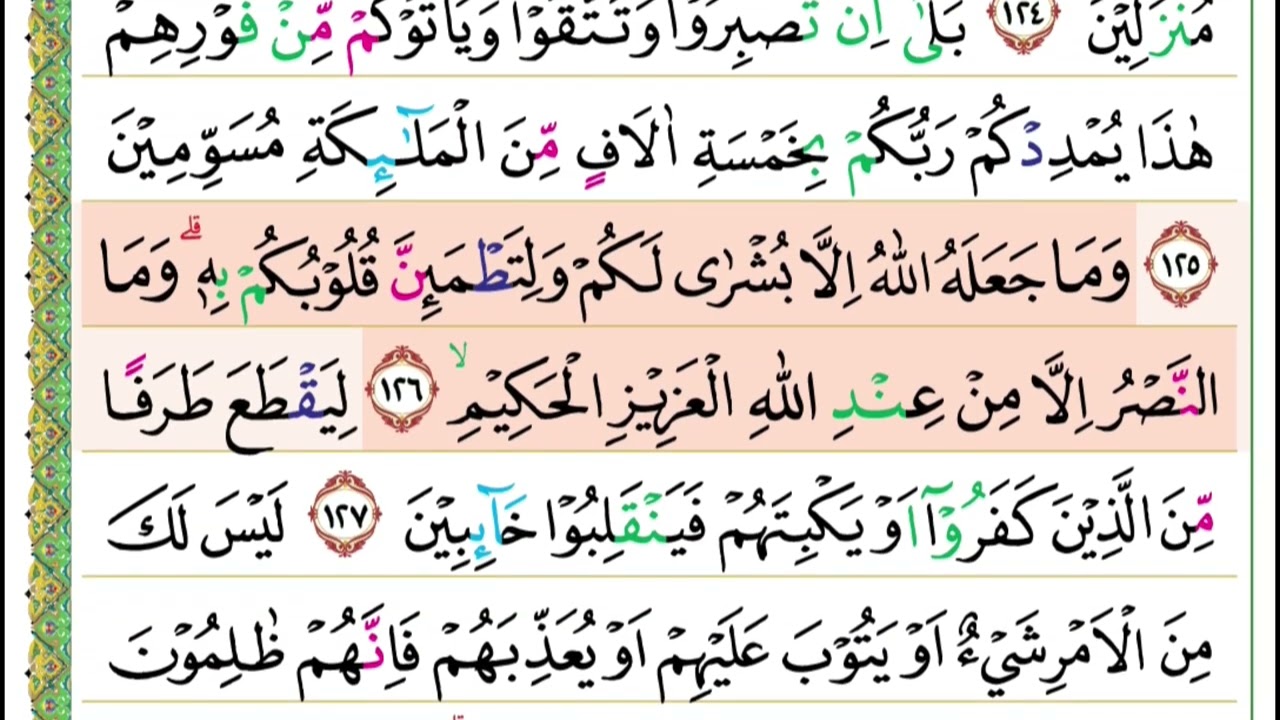 مُنْزَلِيْنَ ١٢٤ بَلٰۤى اِنْ تَصْبِرُوْا وَتَتَّقُوْا وَيَاْتُوْكُمْ مِّنْ فَوْرِهِمْ
هٰذَا يُمْدِدْكُمْ رَبُّكُمْ بِخَمْسَةِ اٰلَافٍ مِّنَ الْمَلٰٓئِكَةِ مُسَوِّمِيْنَ
١٢٥ وَمَا جَعَلَهُ اللّٰهُ اِلَّا بُشْرٰى لَكُمْ وَلِتَطْمَئِنَّ قُلُوْبُكُمْ بِهٖ ۗ وَمَا
النَّصْرُ اِلَّا مِنْ عِنْدِ اللّٰهِ الْعَزِيْزِ الْحَكِيْمِ ۙ ١٢٦ لِيَقْطَعَ طَرَفًا
مِّنَ الَّذِيْنَ كَفَرُوْۤا اَوْ يَكْبِتَهُمْ فَيَنْقَلِبُوْا خَآئِبِيْنَ ١٢٧ لَيْسَ لَكَ
مِنَ الْاَمْرِ شَيْءٌ اَوْ يَتُوْبَ عَلَيْهِمْ اَوْ يُعَذِّبَهُمْ فَاِنَّهُمْ ظٰلِمُوْنَ